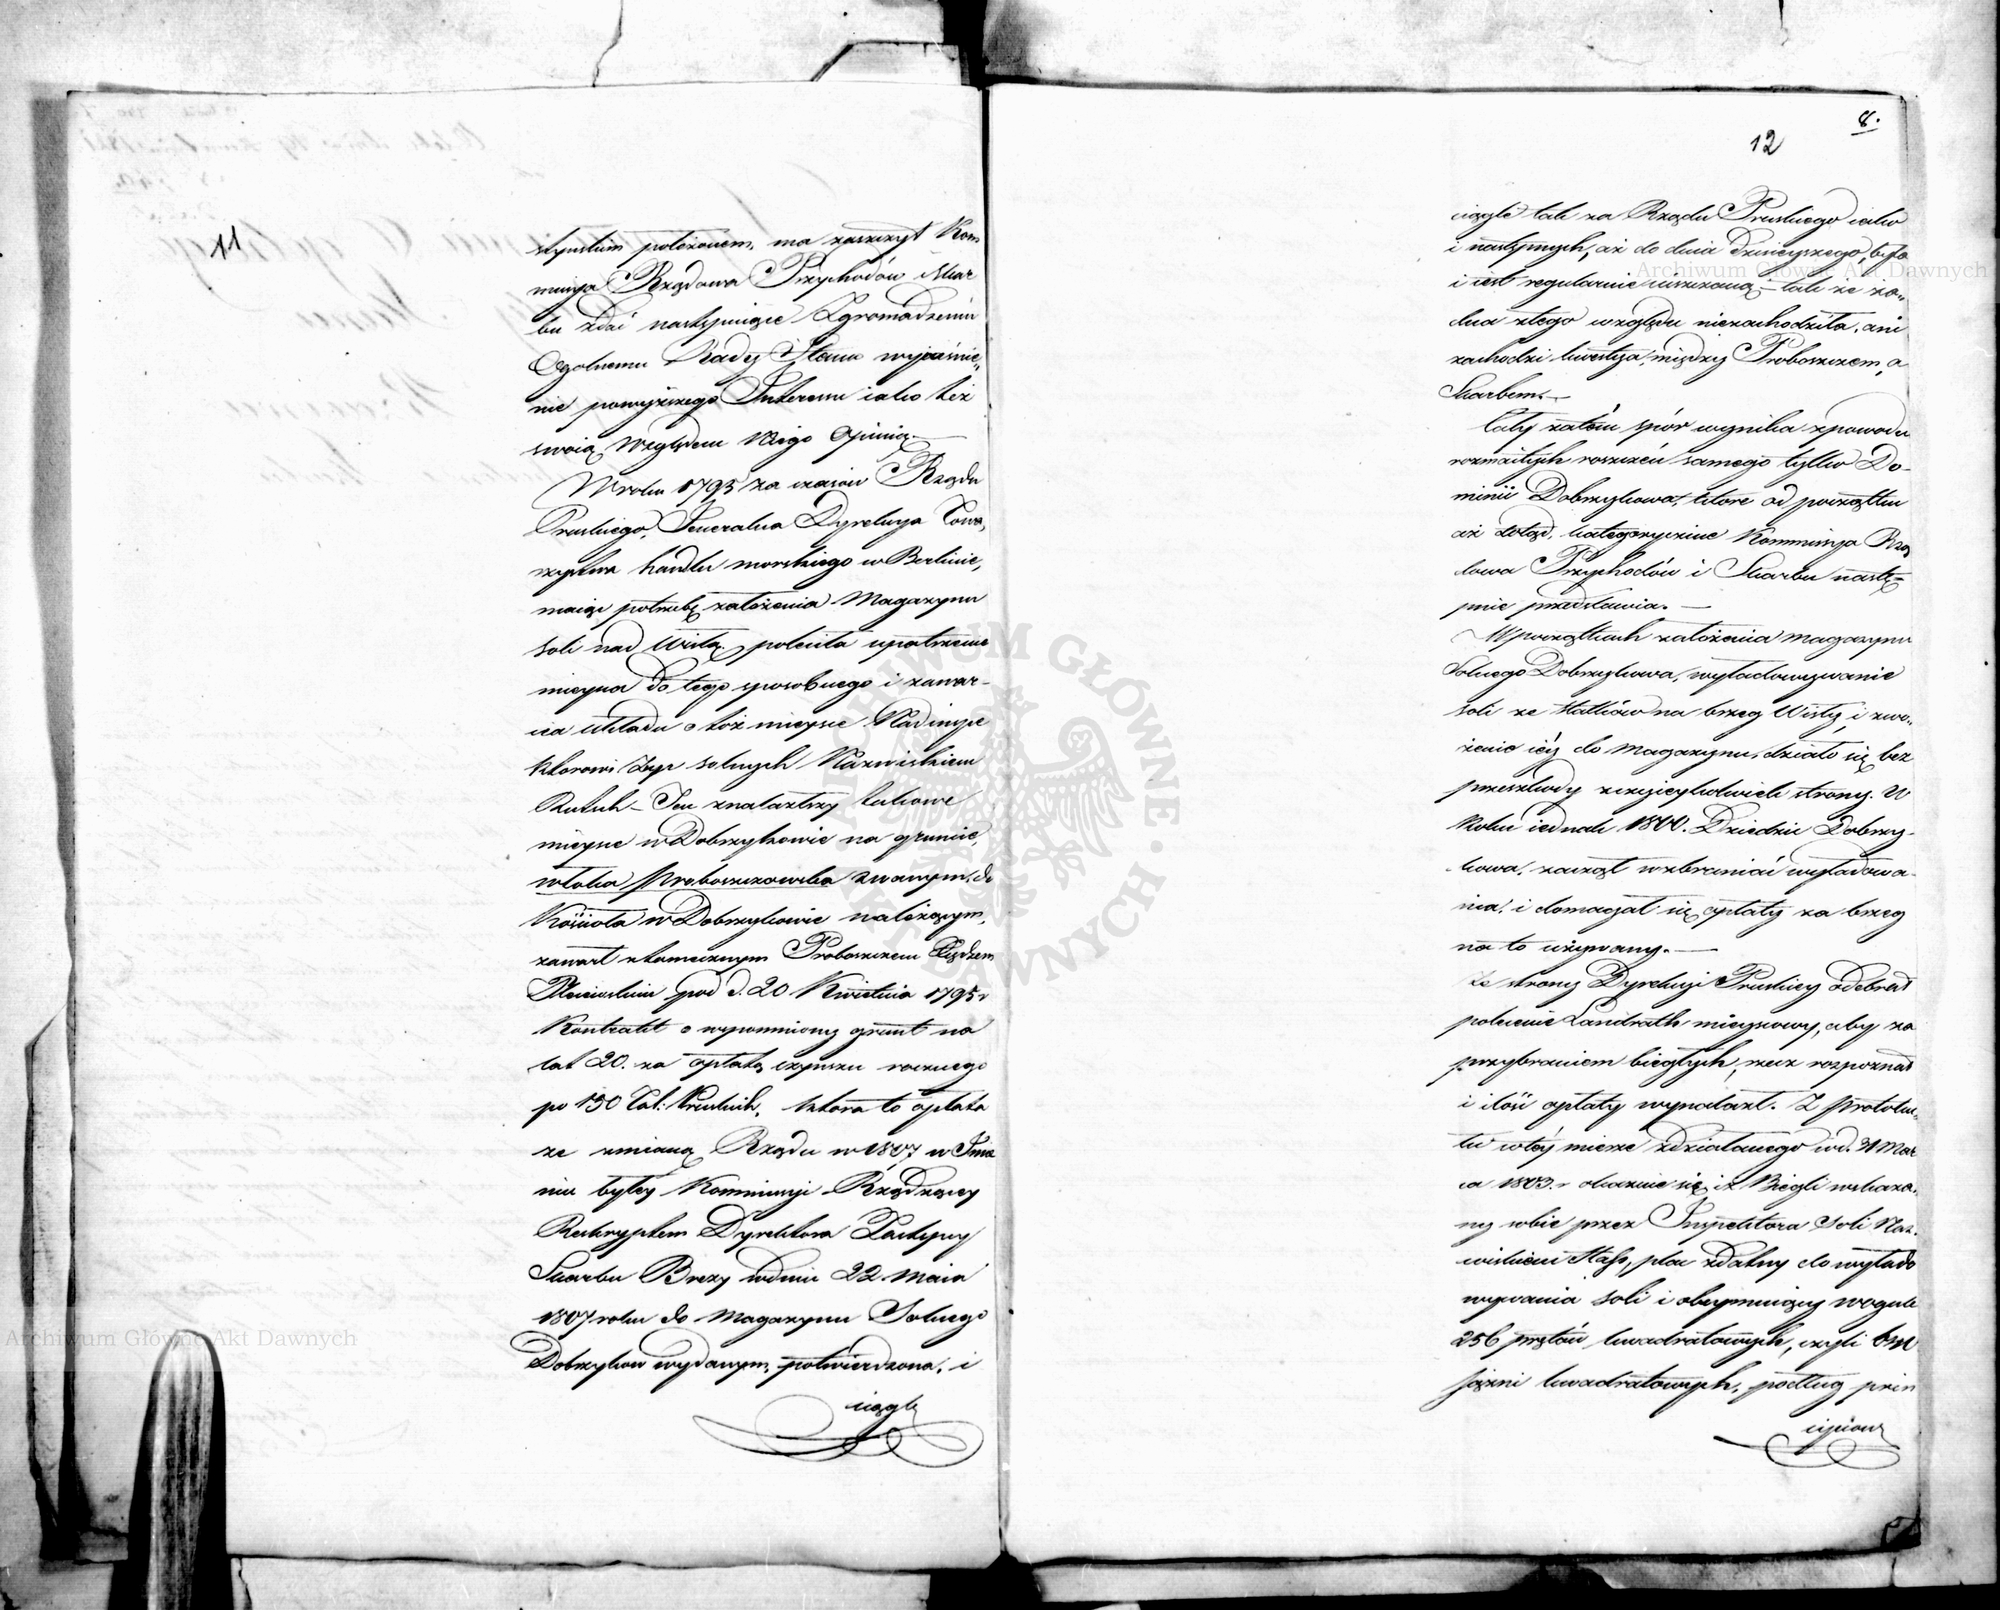 11
stynskim położonem, ma zaszczyt Kom
missya Rządowa Przychodów i Skar
bu zdać następuiące Zgromadzeniu
Ogolnemu Rady Stanu wyjaśnie„
nie powyższego Interessu iako też
swoią względem Niego Opinią.—
W roku 1795 za czasów Rządu
Pruskiego, Generalna Dyrekcya Towa„
rzystwa handlu morskiego w Berlinie,
maiąc potrzebę założenia Magazynu
soli nad Wisłą, poleciła upatrzenie
mieysca do tego sposobnego i zawar-
cia układu o toż mieysce Nadinspe
ktorowi Żup solnych Nazwiskiem
— Ten znalazłszy takowe
mieysce w Dobrzykowie na gruncie,
włoka Proboszczowska zwanym, do
Kościoła w Dobrzykowie należącym,
zawarł z tamecznym Proboszczem Xiędzem
pod d. 20 Kwietnia 1795 r
Kontrakt o wspomniony grunt na
lat 20. za opłatą czynszu rocznego
po 130 Tal: Pruskich, która to opłata
ze zmianą Rządu w 1807 w Imie
niu byłey Kommissyi Rządzącey
Reskryptem Dyrektora Zastępcy
Skarbu Brezy w dniu 22. Maia
1807 roku do Magazynu Solnego
Dobrzyków wydanym, potwierdzona, i
ciągle
8.
12
ciągle tak za Rządu Pruskiego iako
i następnych, aż do dnia dzisieyszego, była
i iest regularnie uiszczaną — tak że ża„
dna z tego względu niezachodziła, ani
zachodzi kwestya, między Proboszczem, a
Skarbem.—
Cały zatém spór wynika z powodu
rozmaitych roszczeń samego tylko Do-
minii Dobrzykowa, które od początku
aż dotąd, kategorycznie Kommissya Rzą
dowa Przychodów i Skarbu nastę-
pnie przedstawia.—
W początkach założenia magazynu
Solnego Dobrzykowa, wyładowywanie
soli ze statków na brzeg Wisły, i zwo„
żenie iéy do magazynu, działo się bez
przeszkody z czyieykolwiek strony. W
Roku iednak 1800. Dziedzic Dobrzy-
kowa, zaczął wzbraniać wyładowa-
nia, i domagał się opłaty za brzeg
na to używany.—
Ze strony Dyrekcyi Pruskiey odebrał
polecenie Landrath mieyscowy, aby za
przybraniem biegłych, rzecz rozpoznał
i ilość opłaty wynalazł. Z protokó„
łu w téy mierze zdziałanego w d. 31 Mar
ca 1803. r okazuie się, iż Biegli wskaza„
ny sobie przez Inspektora Soli Naz„
wiskiem Stass, plac zdatny do wyłado
wywania soli i obeymuiący wogule
256 prętów kwadratowych, czyli
sążni kwadratowych, podług prin
cipiow
ARCHIWUM GŁÓWNE AKT DAWNYCH
Archiwum Główne Akt Dawnych
Archiwum Główne Akt Dawnych